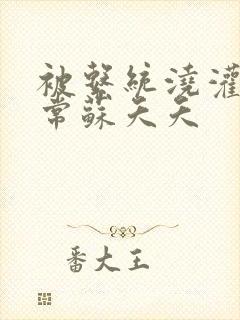 被繫統澆灌
常蘇夭夭
番大王